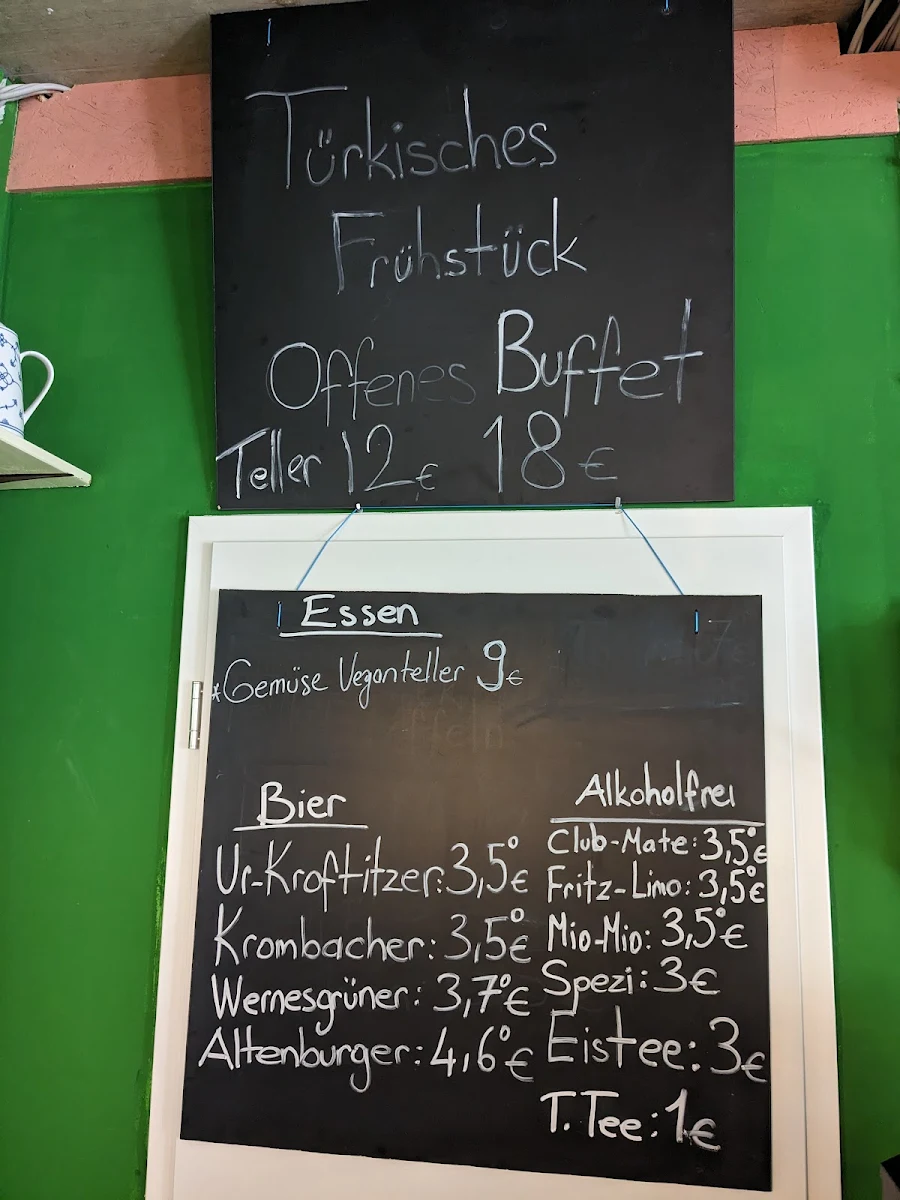 Türkisches
Frühstück
Offenes Buffet
Teller 12€ 18€
Essen
*Gemüse Veganteller 9€
Bier
Ur-Kroftitzer: 3,5⁰€
Krombacher: 3,5⁰€
Wernesgrüner: 3,7⁰€
Altenburger: 4,6⁰€
Alkoholfrei
Club-Mate: 3,5⁰€
Fritz-Limo: 3,5⁰€
Mio-Mio: 3,5⁰€
Spezi: 3€
Eistee: 3€
T. Tee: 1€